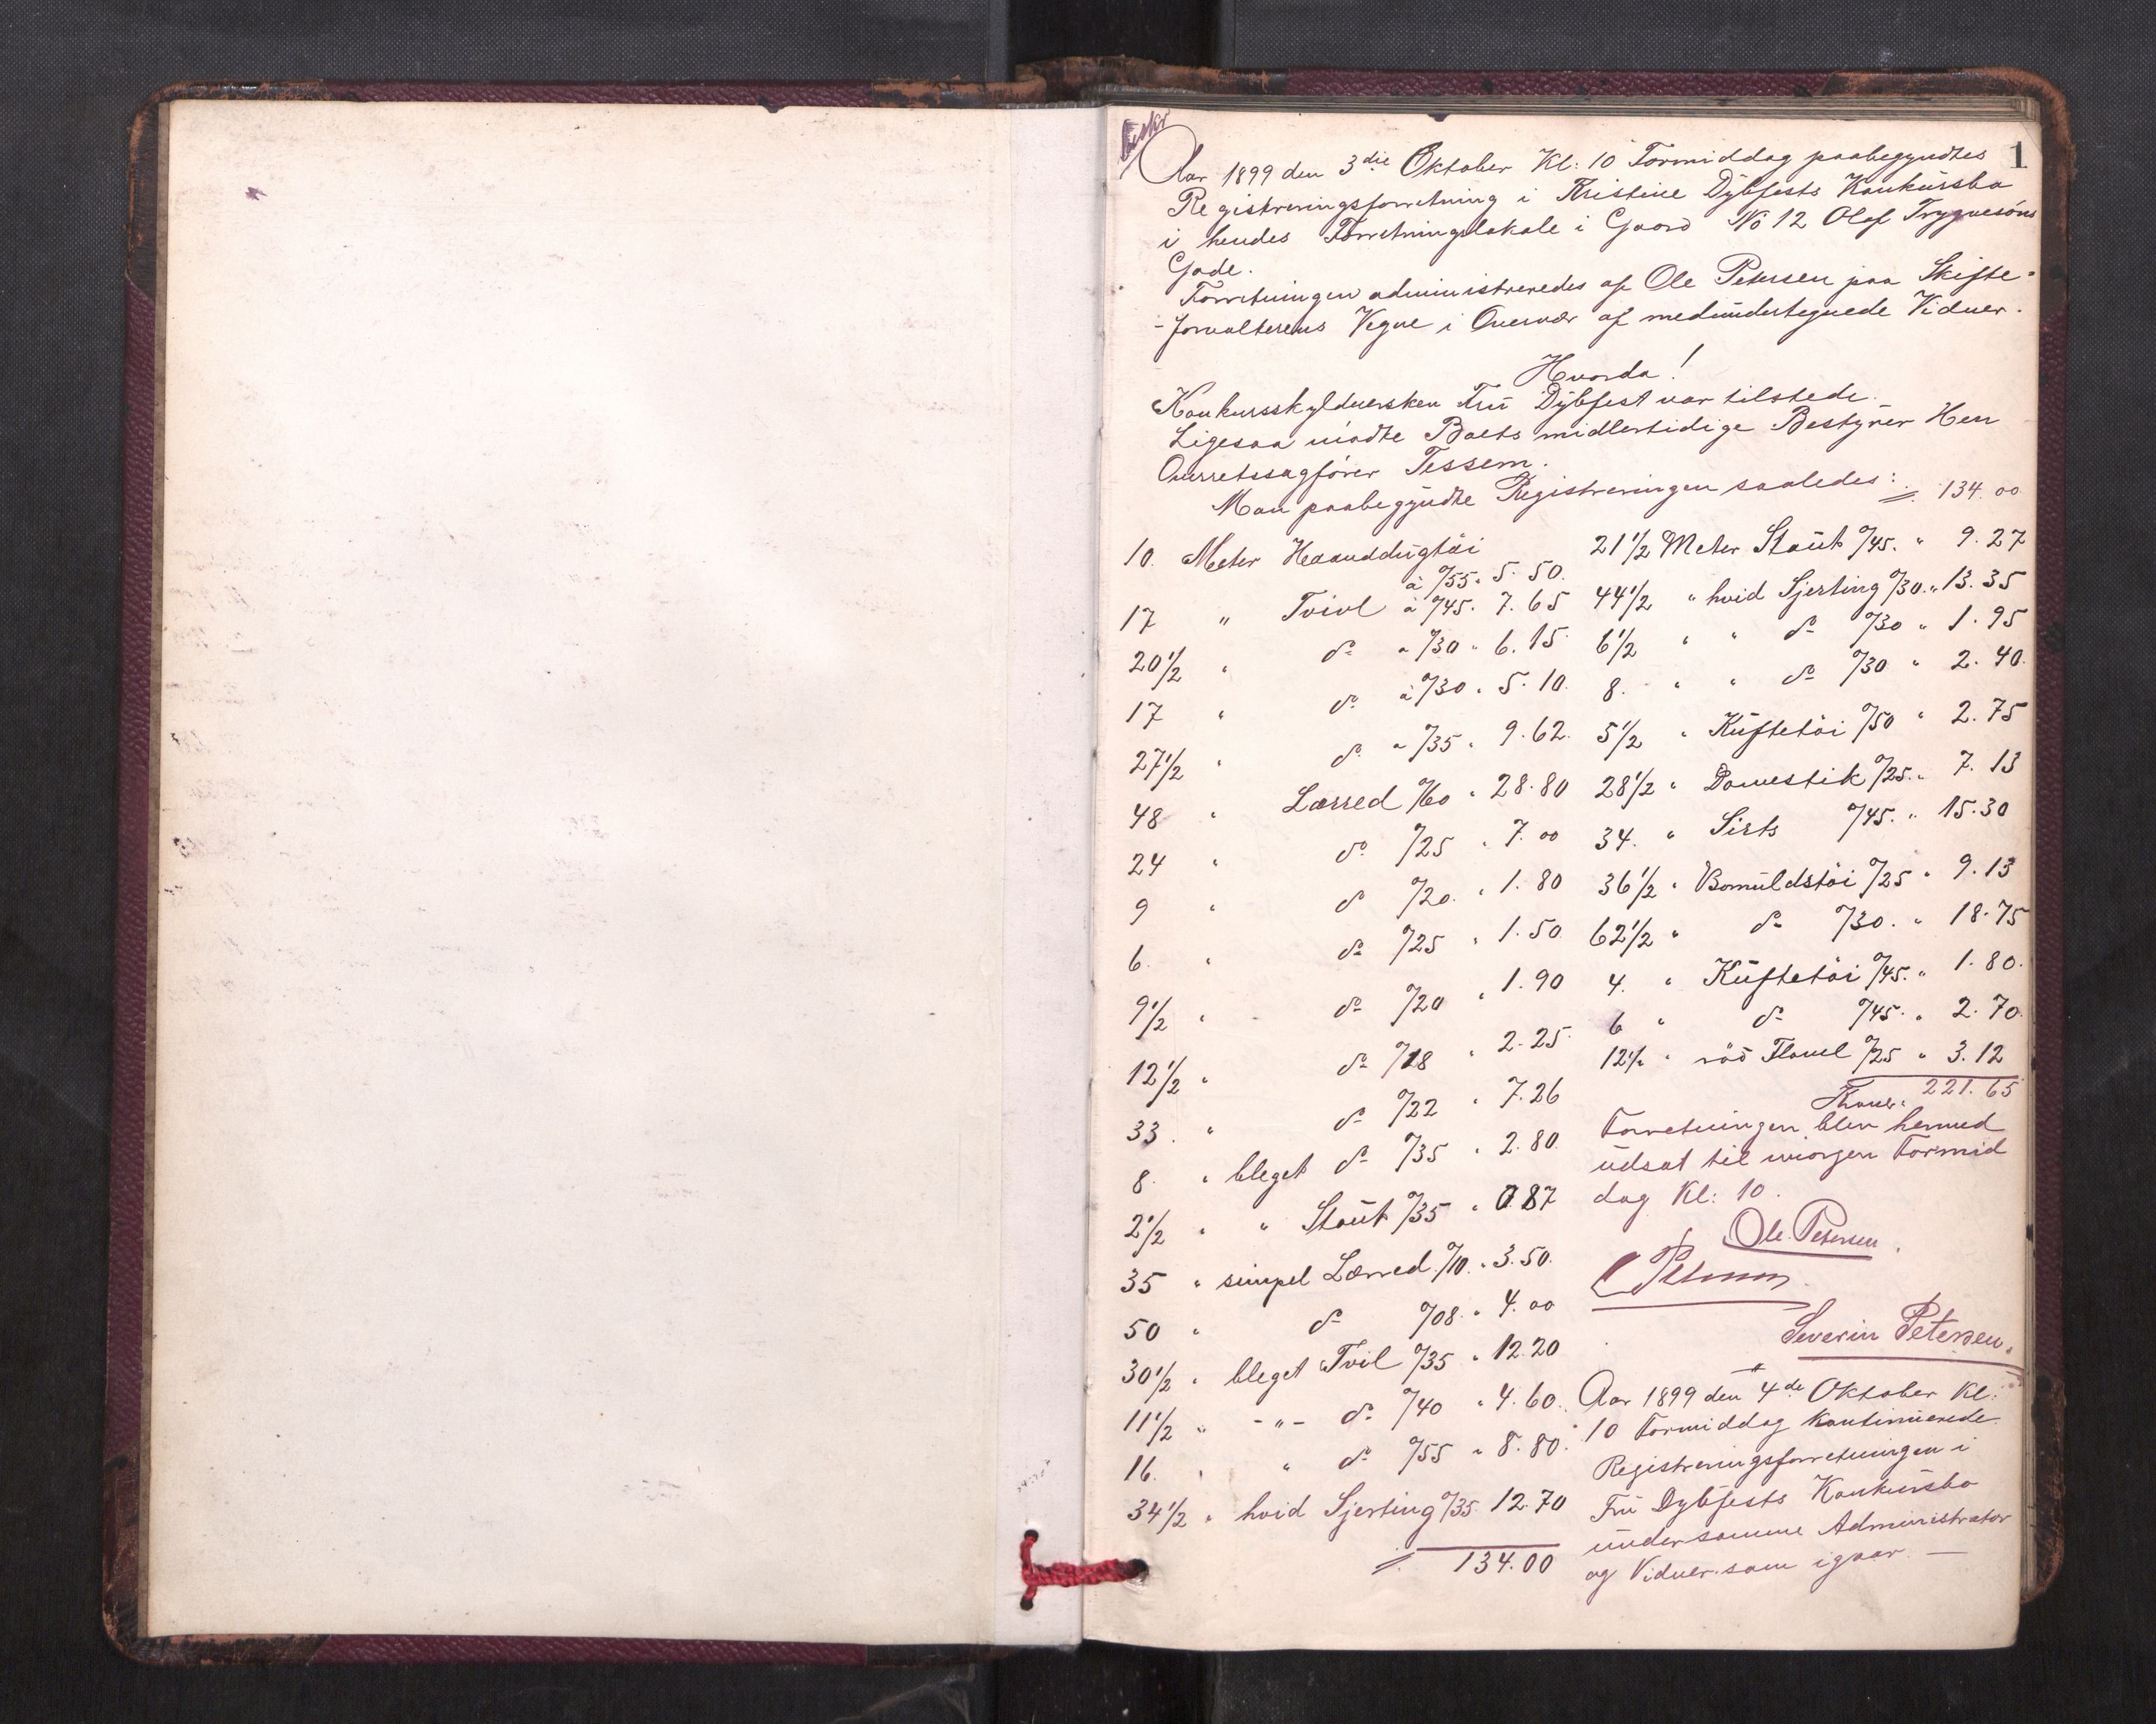 1
Aar 1899 den 3die Oktober Kl: 10 Formiddag paabegyndtes
Registreringsforretning i Kristine Dybfests Konkursbo
i hendes Forretningslokale i Gaard No 12 Olaf Trygvesöns
Gade.
Forretningen administreredes af Ole Petersen paa Skifte-
-forvalterens Vegne i Overvær af medundertegnede Vidner.
Hvorda!
Konkursskyldnersken Fru Dybfest var tilstede.
Ligesaa mödte Boets midlertidige Bestyrer Herr
Overretssagförer Tessem.
Man paabegyndte Registreringen saaledes:
10. Meter Haanddugtöi
à %55 " 5.50.
17 " Tvivl à %45. 7.65
20 1/2 " do " %30 " 6.15
17 " do à %30 " 5.10.
27 1/2 " do " %35 " 9.62.
48 " Lærred %60 " 28.80
24 " do %25 " 7.00
9 " do %20. " 1.80
6. " do %25 " 1.50.
9 1/2 " do %20 " 1.90
12 1/2 " do %18 " 2.25.
33. " do %22 " 7.26
8. " bleget do %35 " 2.80.
2 1/2 " " Staut %35 " 0.87
35 " simpel Lærred %10. " 3.50.
50 " do %08. " 4.00
30 1/2 " bleget Tvil %35 " 12.20
11 1/2 " -"- do %40 " 4.60.
16. " " do %55 " 8.80.
34 1/2 " hvid Sjerting %35. 12.70
134.00
134.00
21 1/2 Meter Staut %45. " 9.27
44 1/2 " hvid Sjerting %30. " 13.35
6 1/2 " " do %30 " 1.95
8. " " do %30 " 2.40.
5 1/2 " Kuftetöi %50 " 2.75
28 1/2 " Domestik %25. " 7.13
34. " Sirts %45. " 15.30
36 1/2 " Bomuldstöi %25 " 9.13
62 1/2 " do %30. " 18.75
4. " Kuftetöi %45. " 1.80.
6 " do %45. " 2.70.
12 1/2 " röd Flanel %25 " 3.12
Kroner " 221.65
Forretningen blev hermed
udsat til imorgen Formid
dag Kl: 10.
Ole Petersen.
Severin Petersen.
Aar 1899 den 4de Oktober Kl:
10 Formiddag kontinuerede
Registreringsforretningen i
Fru Dybfests Konkursbo
under samme Administrator
og Vidner som igaar —